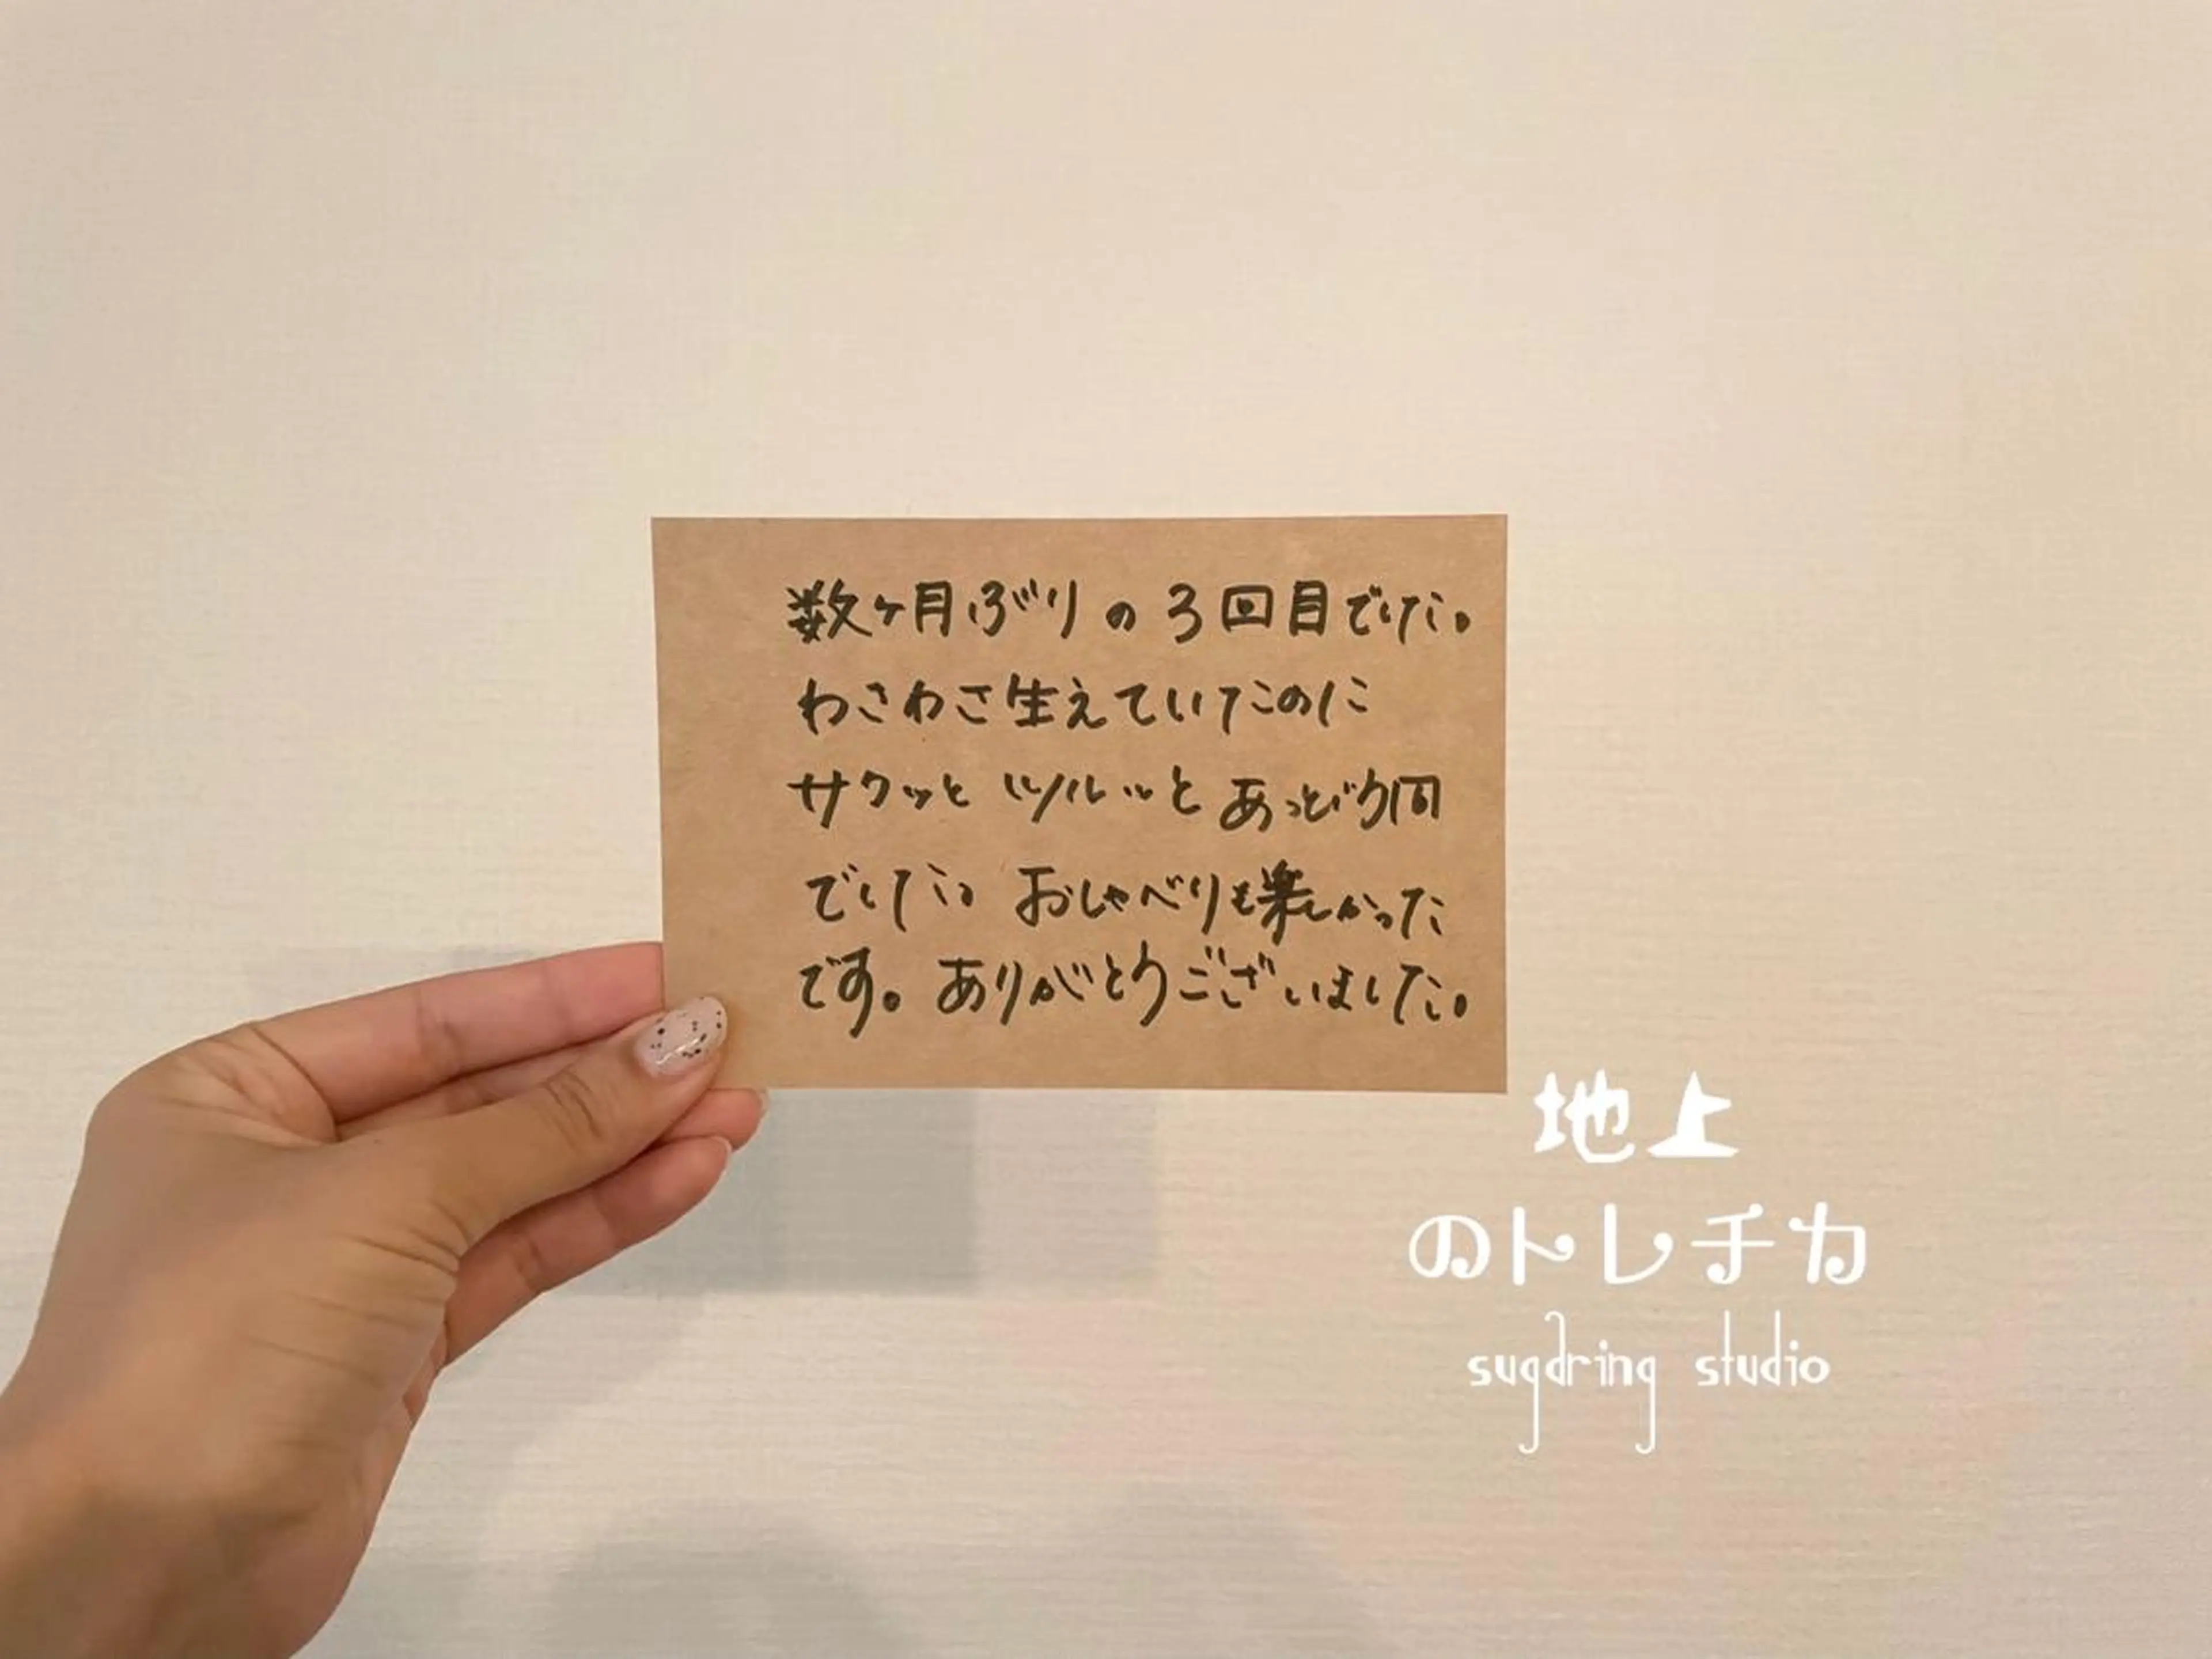 数ヶ月ぶりの3回目でした。
わさわさ生えていたのに
サクッとツルッとあっとゆう間
でした。おしゃべりも楽しかった
です。ありがとうございました。
地上
のトレチカ
sugaring studio